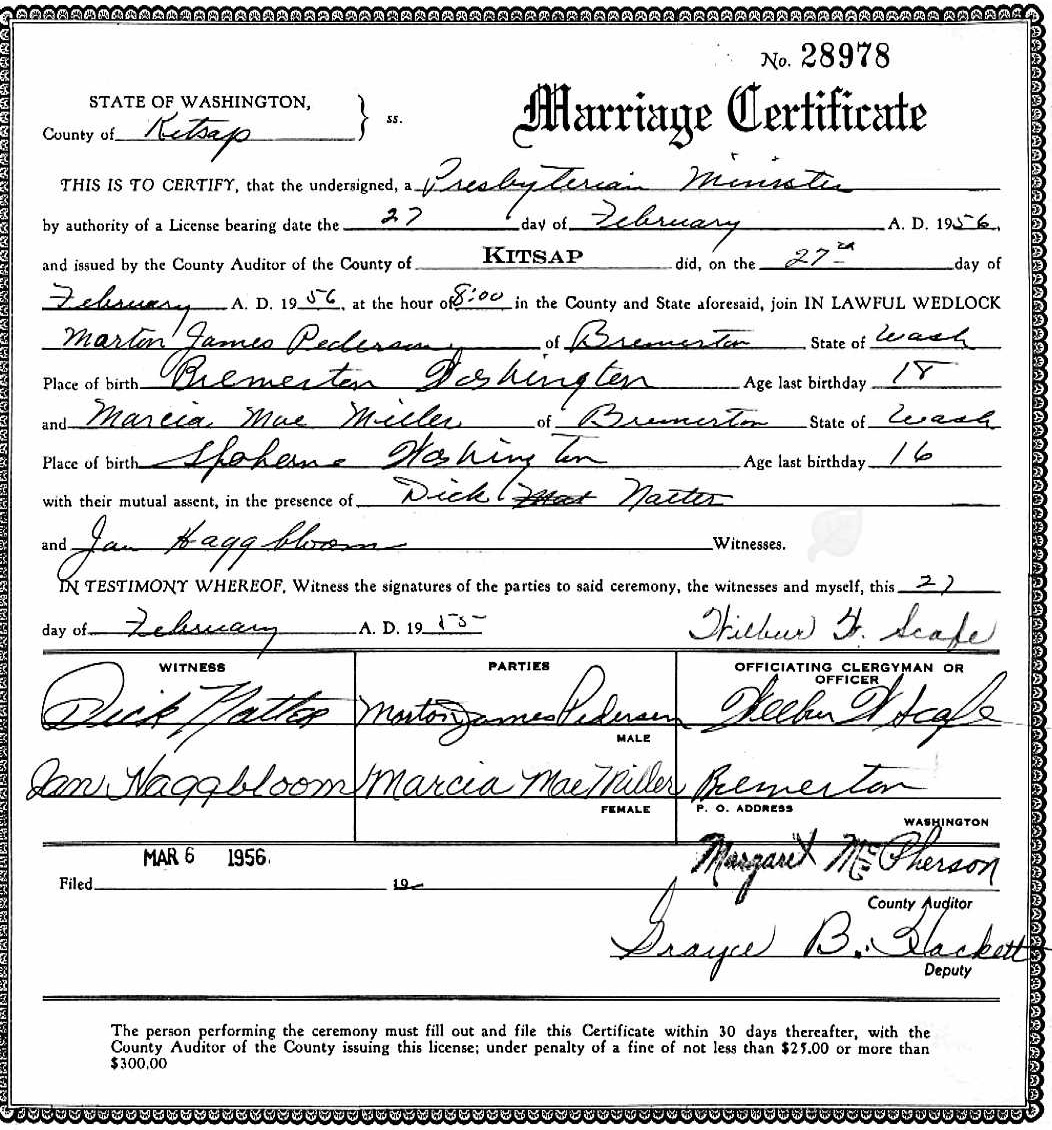 No. 28978
STATE OF WASHINGTON,
County of Kitsap } ss.
Marriage Certificate
THIS IS TO CERTIFY, that the undersigned, a Presbyterian Minister
by authority of a License bearing date the 27 day of February A. D. 1956,
and issued by the County Auditor of the County of KITSAP did, on the 27th day of
February A. D. 1956, at the hour of 8:00 in the County and State aforesaid, join IN LAWFUL WEDLOCK
Morton James Pederson of Bremerton State of Wash
Place of birth Bremerton Washington Age last birthday 18
and Marcia Mae Miller of Bremerton State of Wash
Place of birth Washington Age last birthday 16
with their mutual assent, in the presence of Dick Natter
and Jan Haggbloom Witnesses.
IN TESTIMONY WHEREOF, Witness the signatures of the parties to said ceremony, the witnesses and myself, this 27
day of February A. D. 19
Wilbur W. Scafe
WITNESS PARTIES OFFICIATING CLERGYMAN OR OFFICER
Dick Morton James Pedersen Wilbur W Scafe
MALE
Jan Haggbloom Marcia Mae Miller Bremerton
FEMALE P. O. ADDRESS
WASHINGTON
MAR 6 1956
Margaret McPherson
Filed 19
County Auditor
Grayce B. Hackett
Deputy
The person performing the ceremony must fill out and file this Certificate within 30 days thereafter, with the
County Auditor of the County issuing this license; under penalty of a fine of not less than $25.00 or more than
$300.00